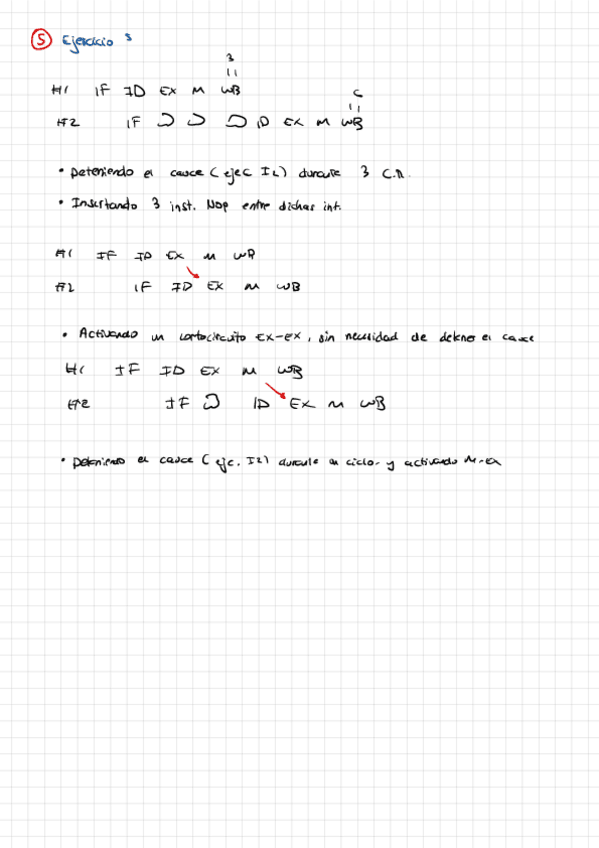 5 Ejercicio 3
3
I1 IF ID EX M WB
C
I2 IF ID EX M WB
• Deteniendo el cauce (ejec I2) durante 3 C.R.
• Insertando 3 inst. Nop entre dichas int.
I1 IF ID EX M WB
I2 IF ID EX M WB
• Activando un cortocircuito EX-EX, sin necesidad de detener el cauce
I1 IF ID EX M WB
I2 IF ID EX M WB
• Deteniendo el cauce (ejc. I2) durante un ciclo y activando M-EX